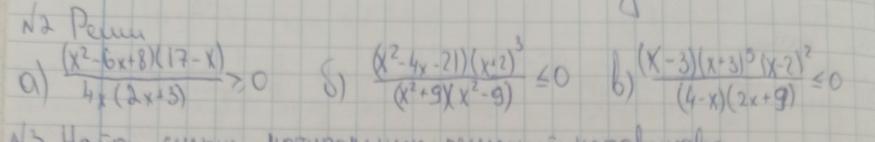 №2 Реши
а) (x²-6x+8)(17-x) / 4x(2x+3) ≥0 б) (x²-4x-21)(x+2)³ / (x²+9)(x²-9) ≤0 в) (x-3)(x+3)⁵(x-2)² / (4-x)(2x+9) ≤0